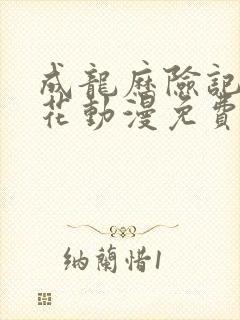 成龍歷險記
花動漫免費
納蘭惜1